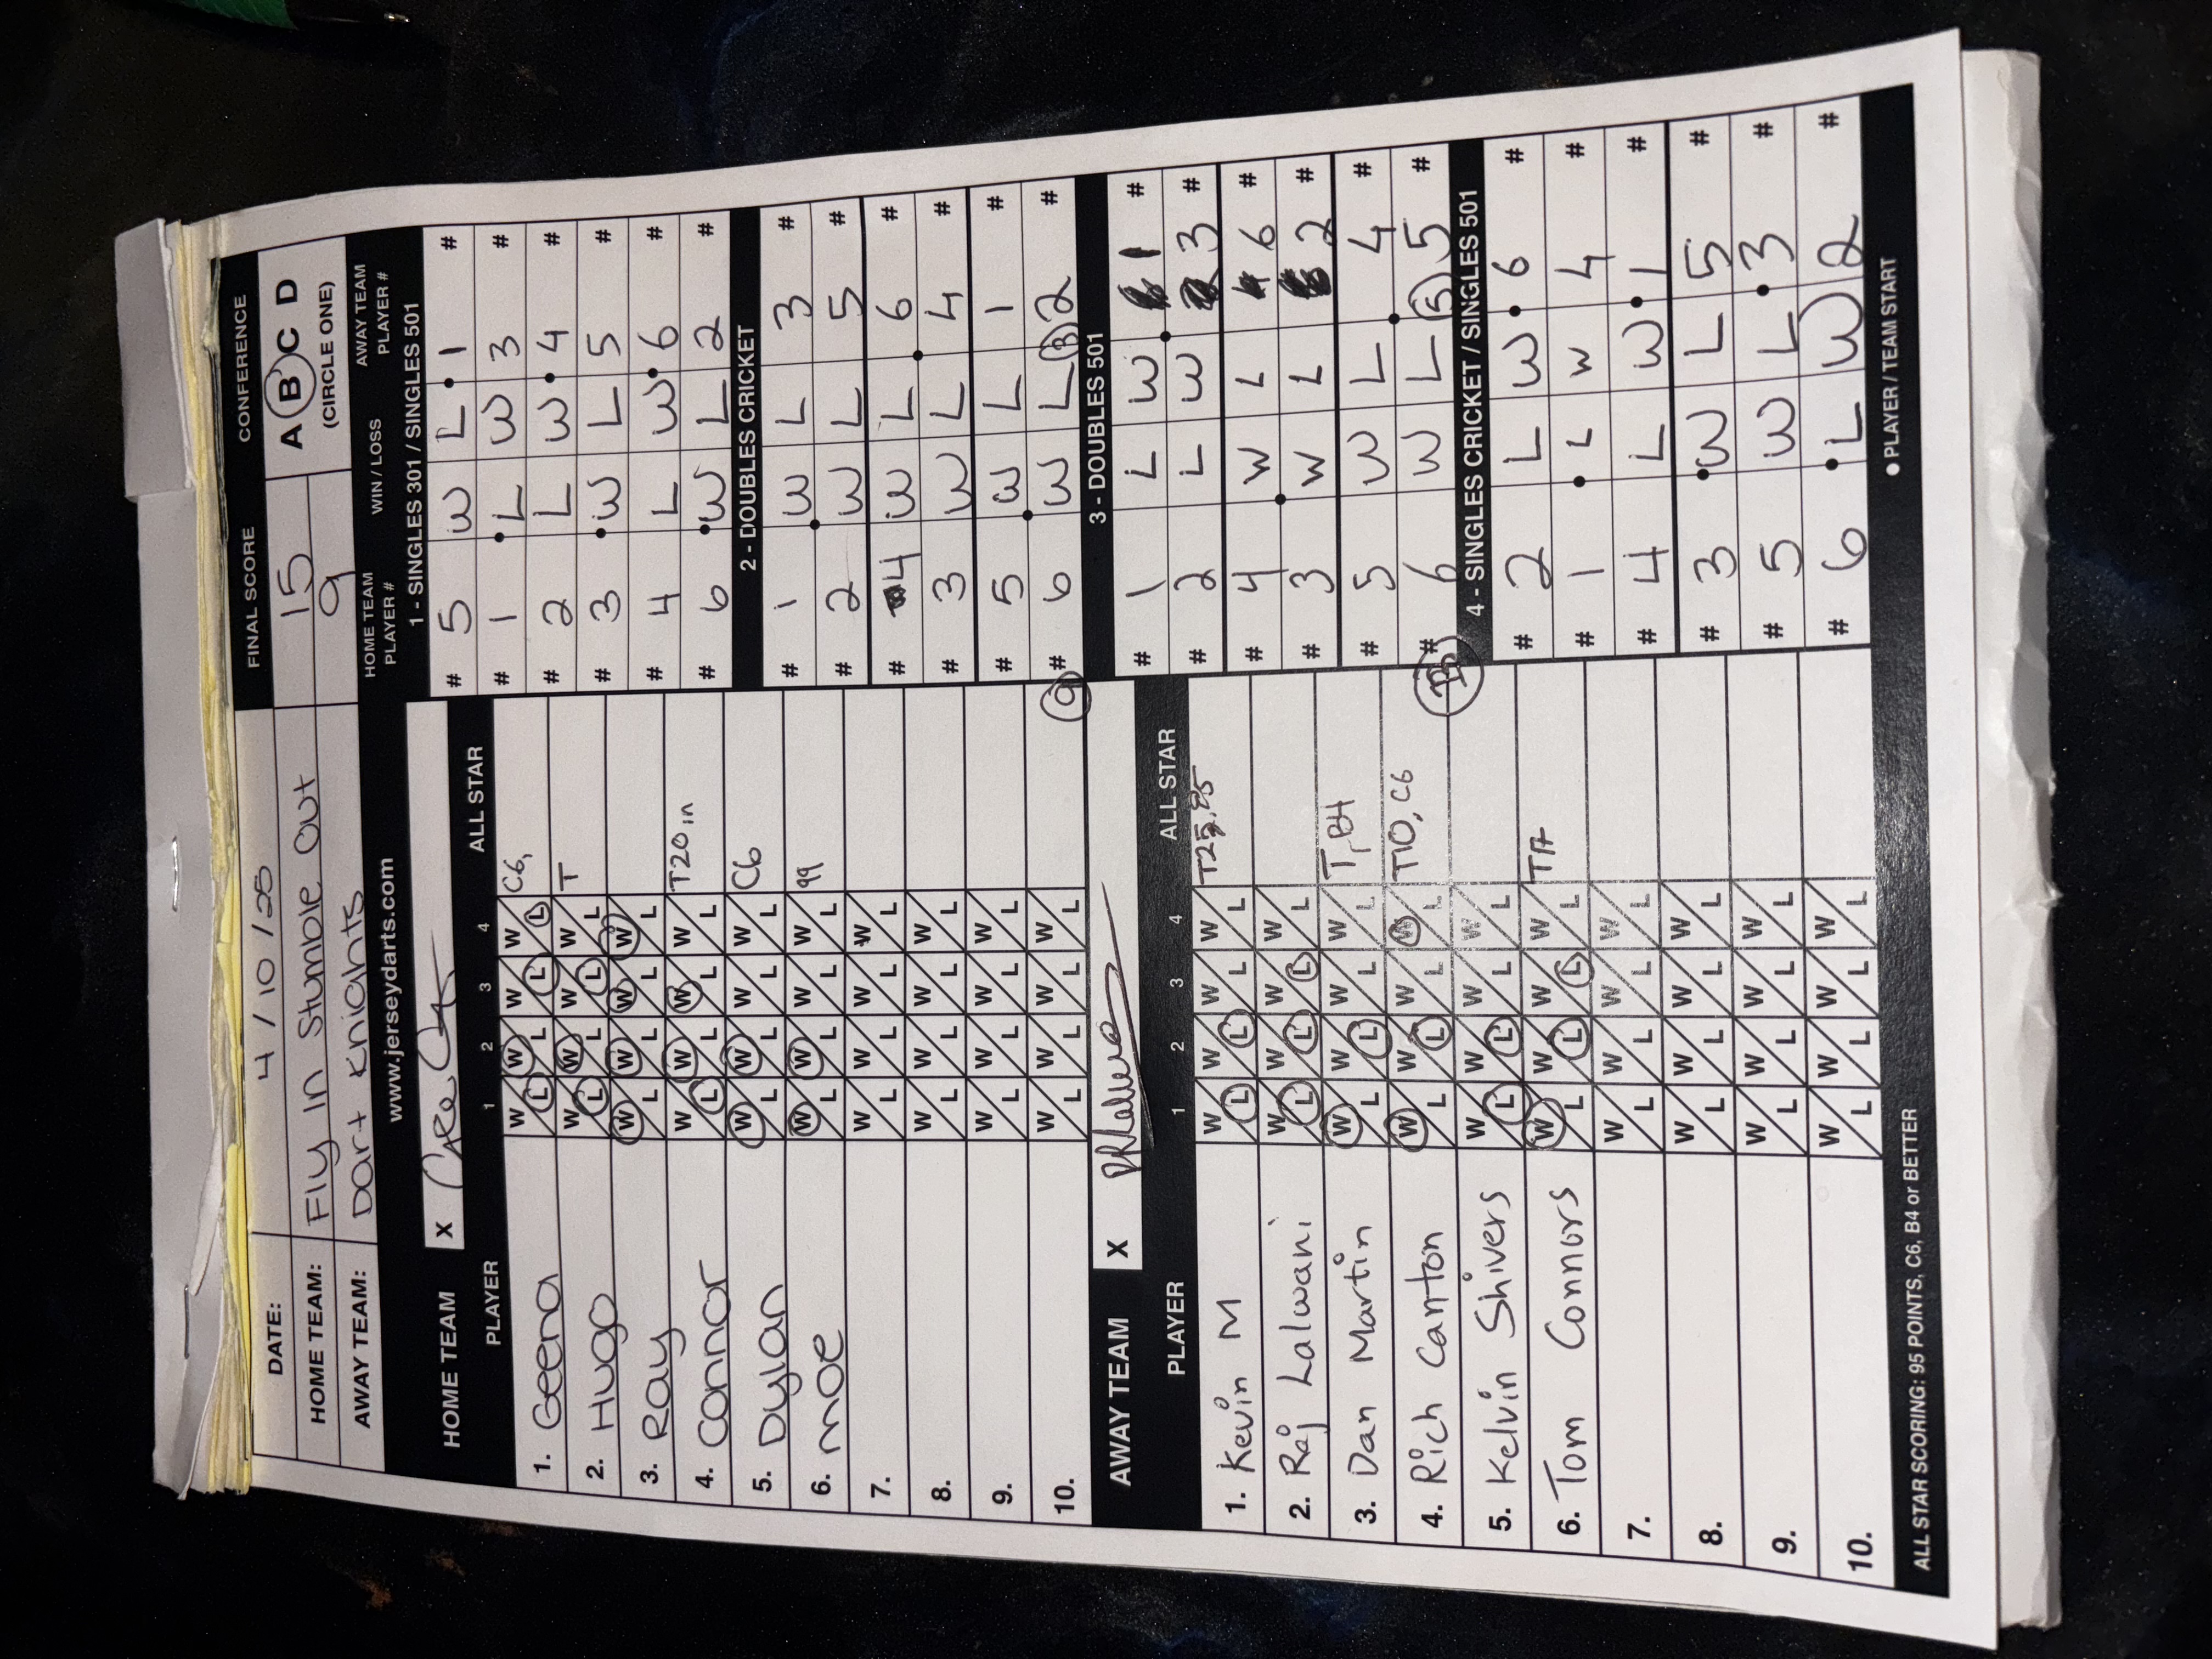 DATE: 4/10/25 FINAL SCORE CONFERENCE
HOME TEAM: Fly In Stumble Out 15 A B C D
AWAY TEAM: Dart Knights 9 (CIRCLE ONE)
www.jerseydarts.com
HOME TEAM X
PLAYER 1 2 3 4 ALL STAR
1. Geena W L W L W L W L C6,
2. Hugo W L W L W L W L T
3. Ray W L W L W L W L
4. Connor W L W L W L W L T20 in
5. Dylan W L W L W L W L C6
6. Moe W L W L W L W L 99
7. W L W L W L W L
8. W L W L W L W L
9. W L W L W L W L
10. W L W L W L W L
9
AWAY TEAM X
PLAYER 1 2 3 4 ALL STAR
1. Kevin M W L W L W L W L
2. Raj Lalwani W L W L W L W L
3. Dan Martin W L W L W L W L T, B4
4. Rich Canton W L W L W L W L T10, C6
5. Kelvin Shivers W L W L W L W L
6. Tom Connors W L W L W L W L
7. W L W L W L W L
8. W L W L W L W L
9. W L W L W L W L
10. W L W L W L W L
ALL STAR SCORING: 95 POINTS, C6, B4 or BETTER
HOME TEAM PLAYER # WIN / LOSS AWAY TEAM PLAYER #
1 - SINGLES 301 / SINGLES 501
# 5 W L 1 #
# 1 L W 3 #
# 2 L W 4 #
# 3 W L 5 #
# 4 L W 6 #
# 6 W L 2 #
2 - DOUBLES CRICKET
# 1 W L 3 #
# 2 W L 5 #
# 4 W L 6 #
# 3 W L 4 #
# 5 W L 1 #
# 6 W L 3 2 #
3 - DOUBLES 501
# 1 L W 1 #
# 2 L W 3 #
# 4 W L 6 #
# 3 W L 2 #
# 5 W L 4 #
# 6 W L 5 5 #
4 - SINGLES CRICKET / SINGLES 501
# 2 L W 6 #
# 1 L W 4 #
# 4 L W 1 #
# 3 W L 5 #
# 5 W L 3 #
# 6 L W 2 #
● PLAYER / TEAM START